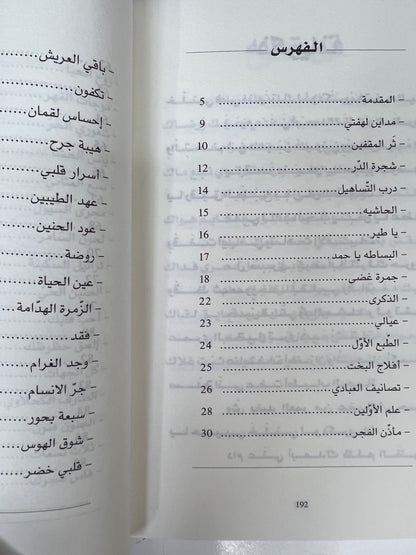 الفهرس
- المقدمة 5
- مداين لهفتي 9
- ثر المقفين 10
- شجرة الدّر 12
- درب التّساهيل 14
- الحاشيه 15
- يا طير 16
- البساطه يا حمد 17
- جمرة غضى 18
- الذكرى 22
- عيالي 23
- الطّبع الأوّل 24
- افلاج البخت 25
- تصانيف العبادي 26
- علم الأوّلين 28
- مآذن الفجر 30
192
- باقي العريش
- تكفون
- إحساس لقمان
- هيبة جرح
- اسرار قلبي
- عهد الطيبين
- عود الحنين
- روضة
- عين الحياة
- الزّمرة الهدّامة
- فقد
- وجد الغرام
- جرّ الانسام
- سبعة بحور
- شوق الهوس
- قلبي خضر